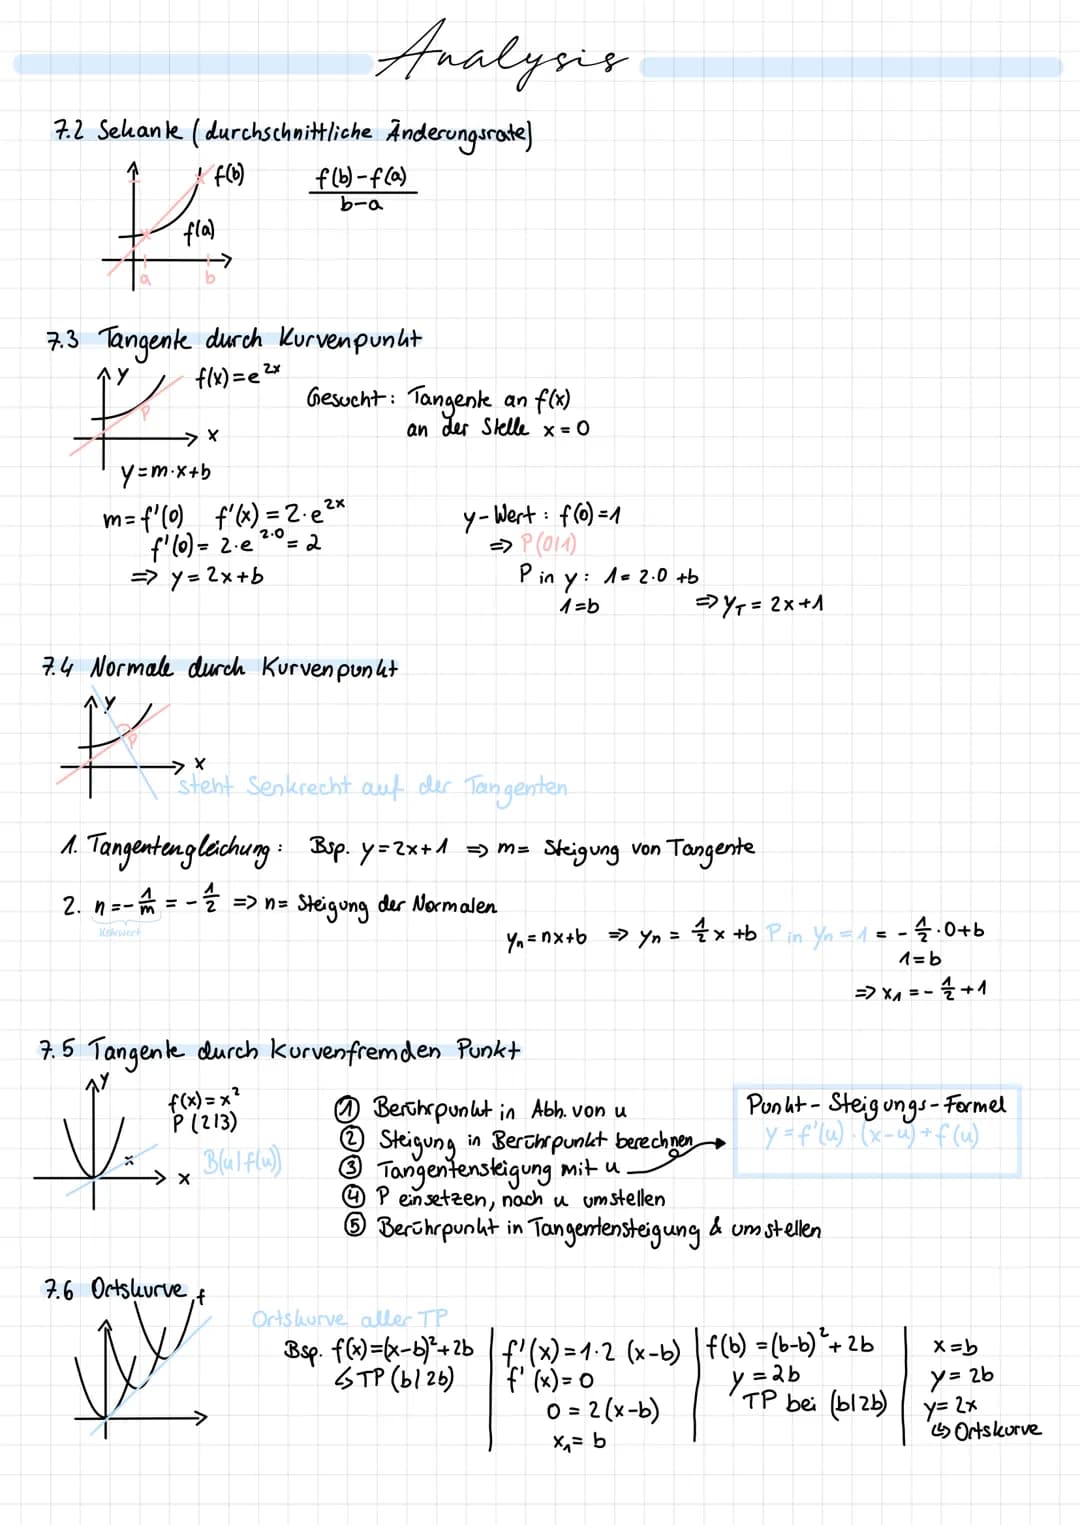 Analysis
7.2 Sekante (durchschnittliche Änderungsrate)
f(b)
f(b)-f(a)
b-a
f(a)
a
b
7.3 Tangente durch Kurvenpunkt
y
f(x)=e^2x
P
Gesucht: Tangente an f(x)
an der Stelle x=0
x
y=m·x+b
m=f'(0) f'(x)=2·e^2x
f'(0)=2·e^2·0=2
=> y=2x+b
y-Wert: f(0)=1
=> P(0|1)
P in y: 1=2·0+b
1=b
=> y_T=2x+1
7.4 Normale durch Kurvenpunkt
y
P
x
steht Senkrecht auf der Tangenten
1. Tangentengleichung: Bsp. y=2x+1 => m= Steigung von Tangente
2. n=-1/m=-1/2 => n= Steigung der Normalen
Kehrwert
y_n=nx+b => y_n=1/2x+b P in y_n=1=-1/2·0+b
1=b
=> x_1=-1/2+1
7.5 Tangente durch kurvenfremden Punkt
y
f(x)=x²
P(2|3)
B(u|f(u))
x
① Berührpunkt in Abh. von u
② Steigung in Berührpunkt berechnen
③ Tangentensteigung mit u
④ P einsetzen, nach u umstellen
⑤ Berührpunkt in Tangentensteigung & umstellen
Punkt-Steigungs-Formel
y=f'(u)·(x-u)+f(u)
7.6 Ortskurve
f
Ortskurve aller TP
Bsp. f(x)=(x-b)²+2b
↳ TP(b|2b)
f'(x)=1·2(x-b)
f'(x)=0
0=2(x-b)
x_1=b
f(b)=(b-b)²+2b
y=2b
TP bei (b|2b)
x=b
y=2b
y=2x
↳ Ortskurve